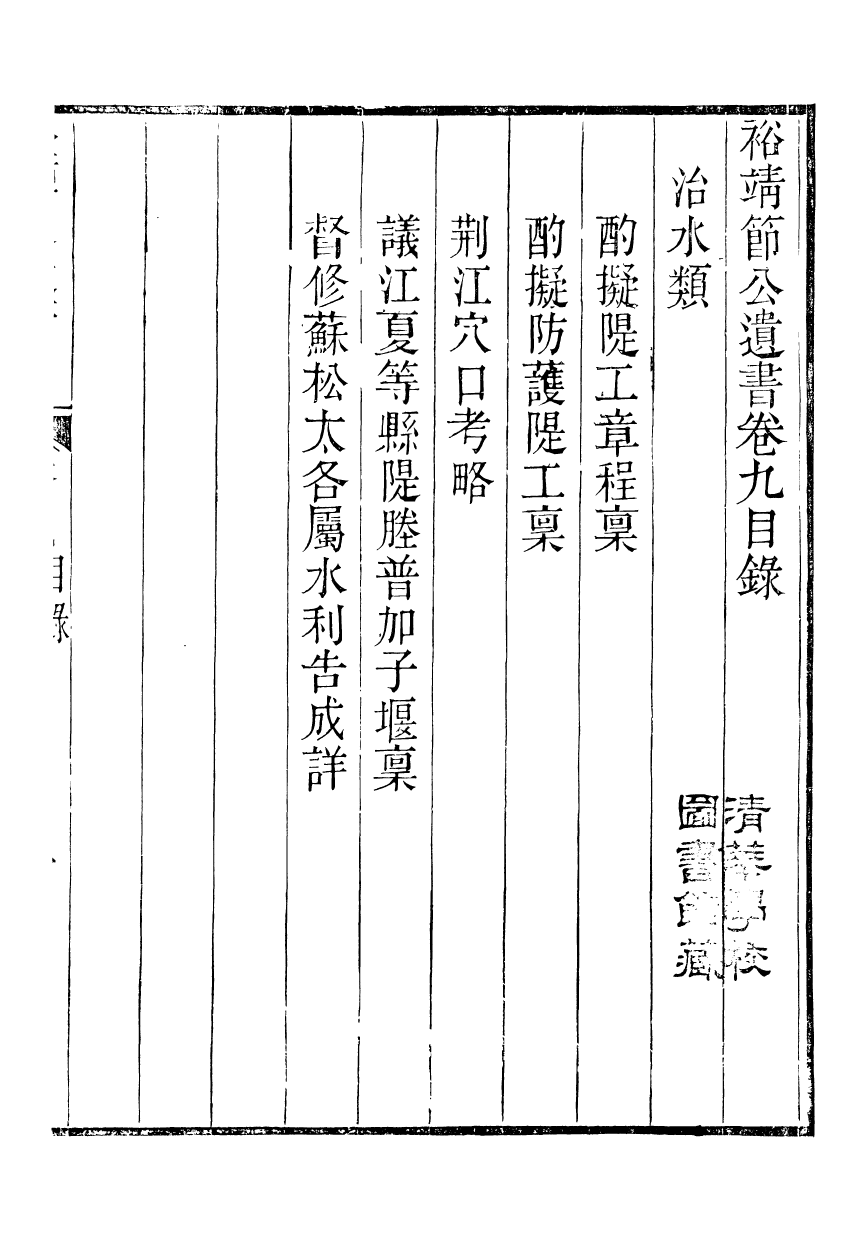 裕靖節公遺書卷九目錄
治水類
酌擬隄工章程稟
酌擬防護隄工稟
荆江穴口考略
議江夏等縣隄塍普加子堰稟
督修蘇松太各屬水利告成詳
清華學校
圖書館藏
目錄